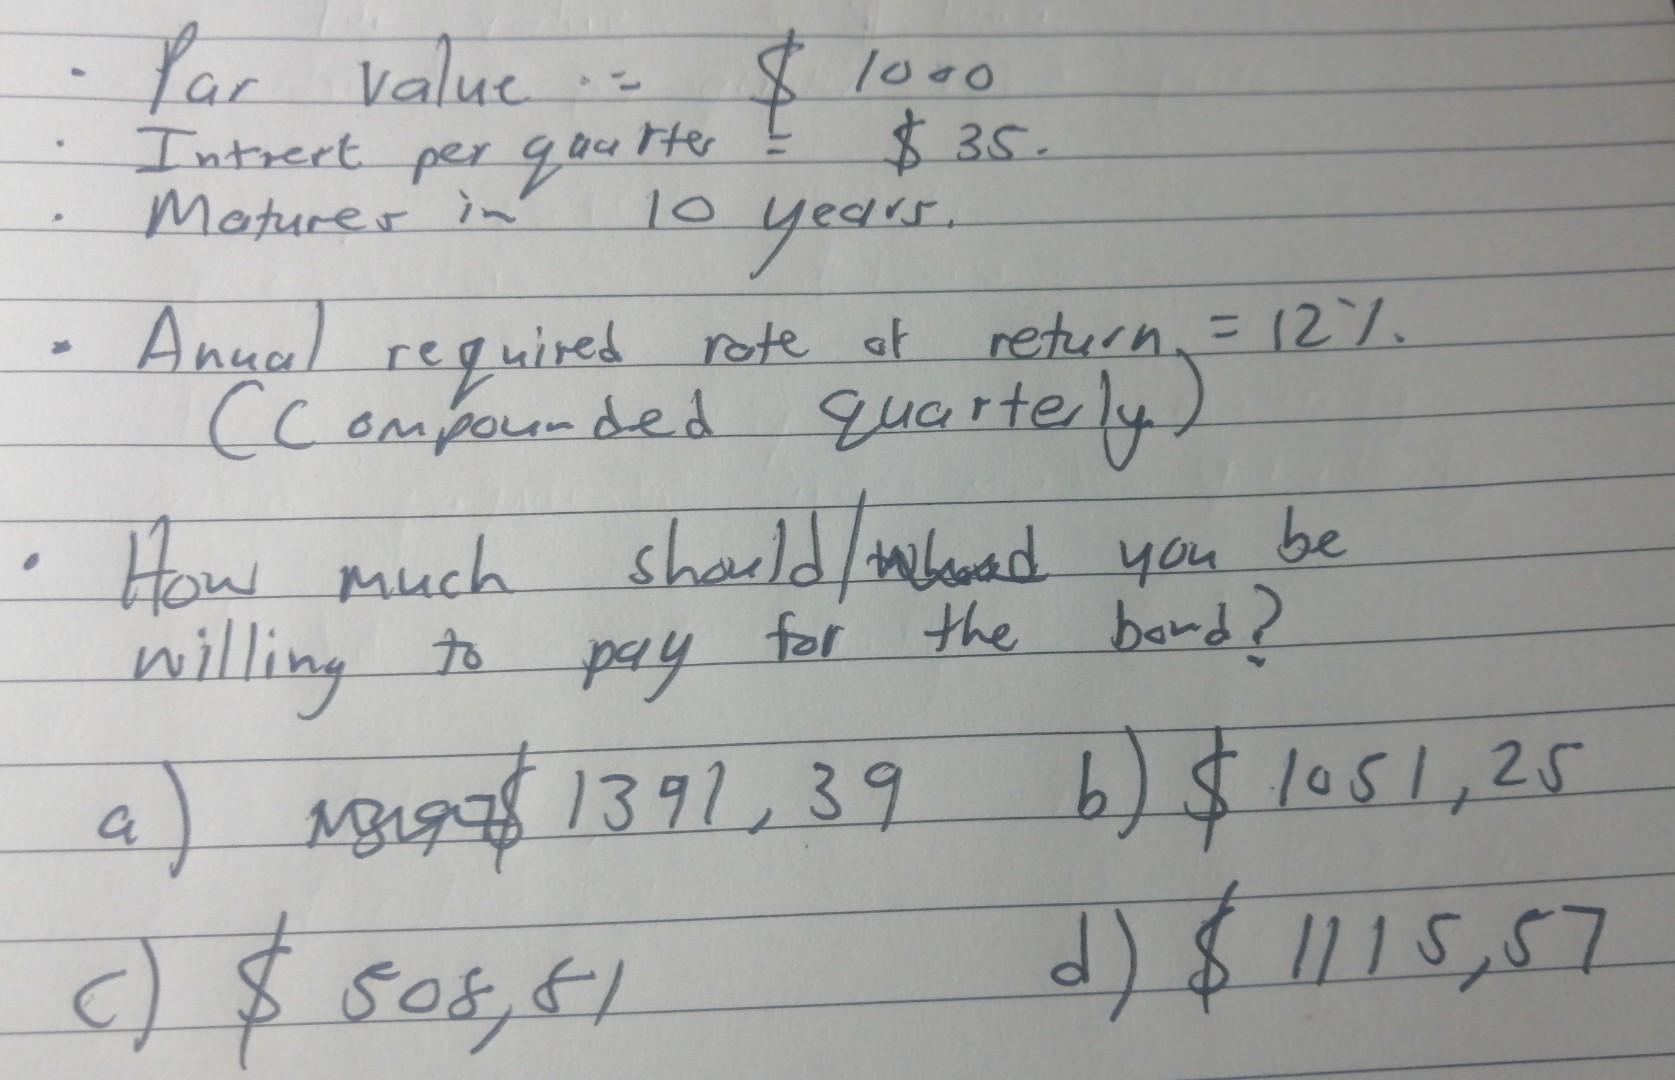 · Par value := $ 1000
· Intrert per quarter = $ 35.
· Matures in 10 years.
· Anual required rate of return = 12%.
(Compounded quarterly)
· How much should/ you be
willing to pay for the bond?
a) $ 1391,39 b) $ 1051,25
c) $ 508,81 d) $ 1115,57